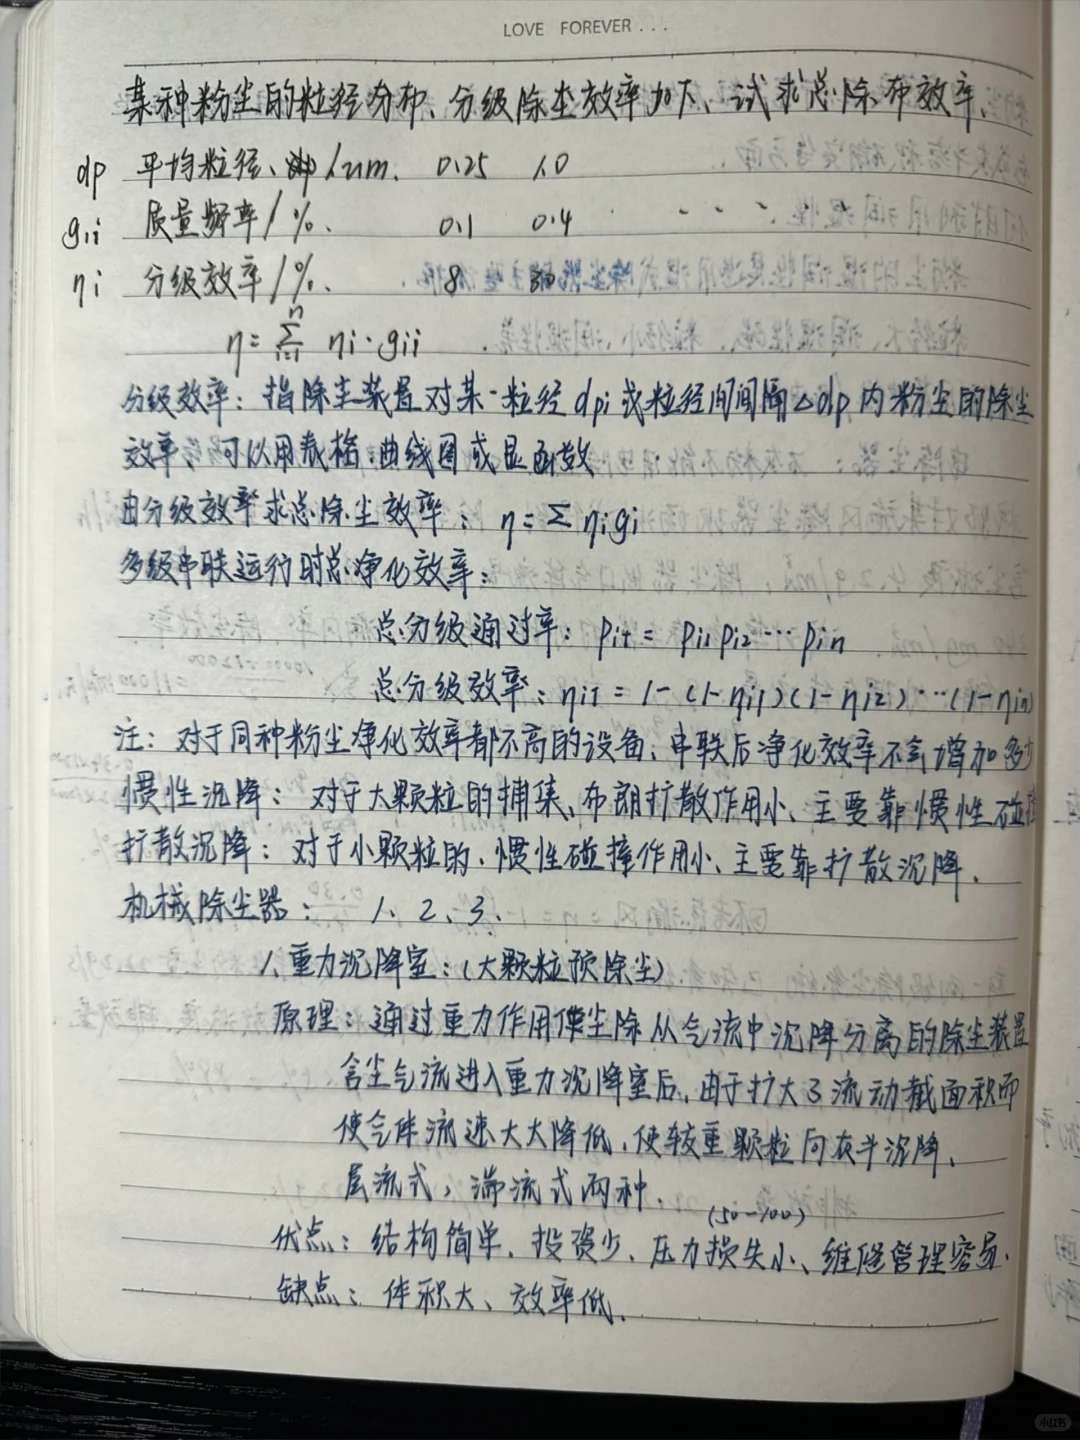 LOVE FOREVER...
某种粉尘的粒径分布、分级除尘效率如下、试求总除布效率.
dp 平均粒径、/um. 0.25 1.0
gii 质量频率/%. 0.1 0.4 ......
ηi 分级效率/%. 8 30
η=∑ⁿᵢ₌₁ ηi·gii
分级效率:指除尘装置对某一粒径dpi或粒径间间隔△dp内粉尘的除尘
效率、可以用表格.曲线图或显函数
由分级效率求总除尘效率:η=∑ηigi
多级串联运行时总净化效率:
总分级通过率:PiT=Pi1Pi2…Pin
总分级效率:ηiT=1-(1-ηi1)(1-ηi2)…(1-ηin)
注:对于同种粉尘净化效率都不高的设备、串联后净化效率不会增加多少
惯性沉降:对于大颗粒的捕集、布朗扩散作用小、主要靠惯性碰撞
扩散沉降:对于小颗粒的、惯性碰撞作用小、主要靠扩散沉降.
机械除尘器:1、2、3.
1、重力沉降室:(大颗粒预除尘)
原理:通过重力作用使尘除从气流中沉降分离的除尘装置
含尘气流进入重力沉降室后、由于扩大了流动截面积而
使气体流速大大降低、使较重颗粒向灰斗沉降、
层流式,湍流式两种.
(50-100)
优点:结构简单、投资少、压力损失小、维修管理容易.
缺点:体积大、效率低.
小红书